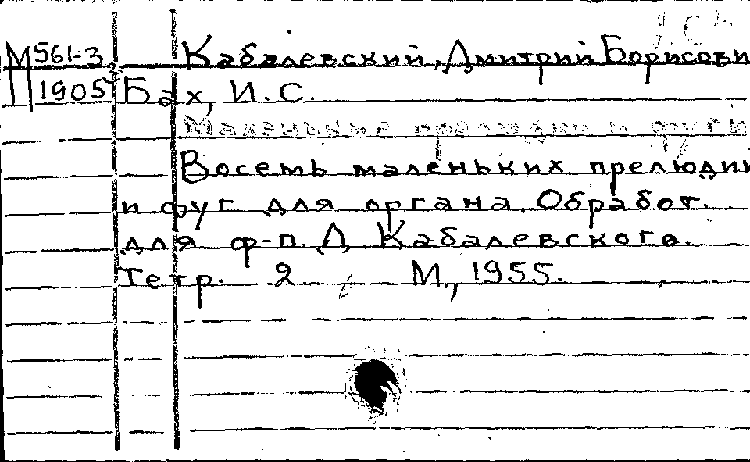 М561-3 Кабалевский, Дмитрий Борисови
1905 Бах, И. С.
Маленькие прелюдии и фуги
Восемь маленьких прелюдий
и фуг для органа. Обработ.
для ф-п. Д. Кабалевского.
Тетр. 2 М., 1955.